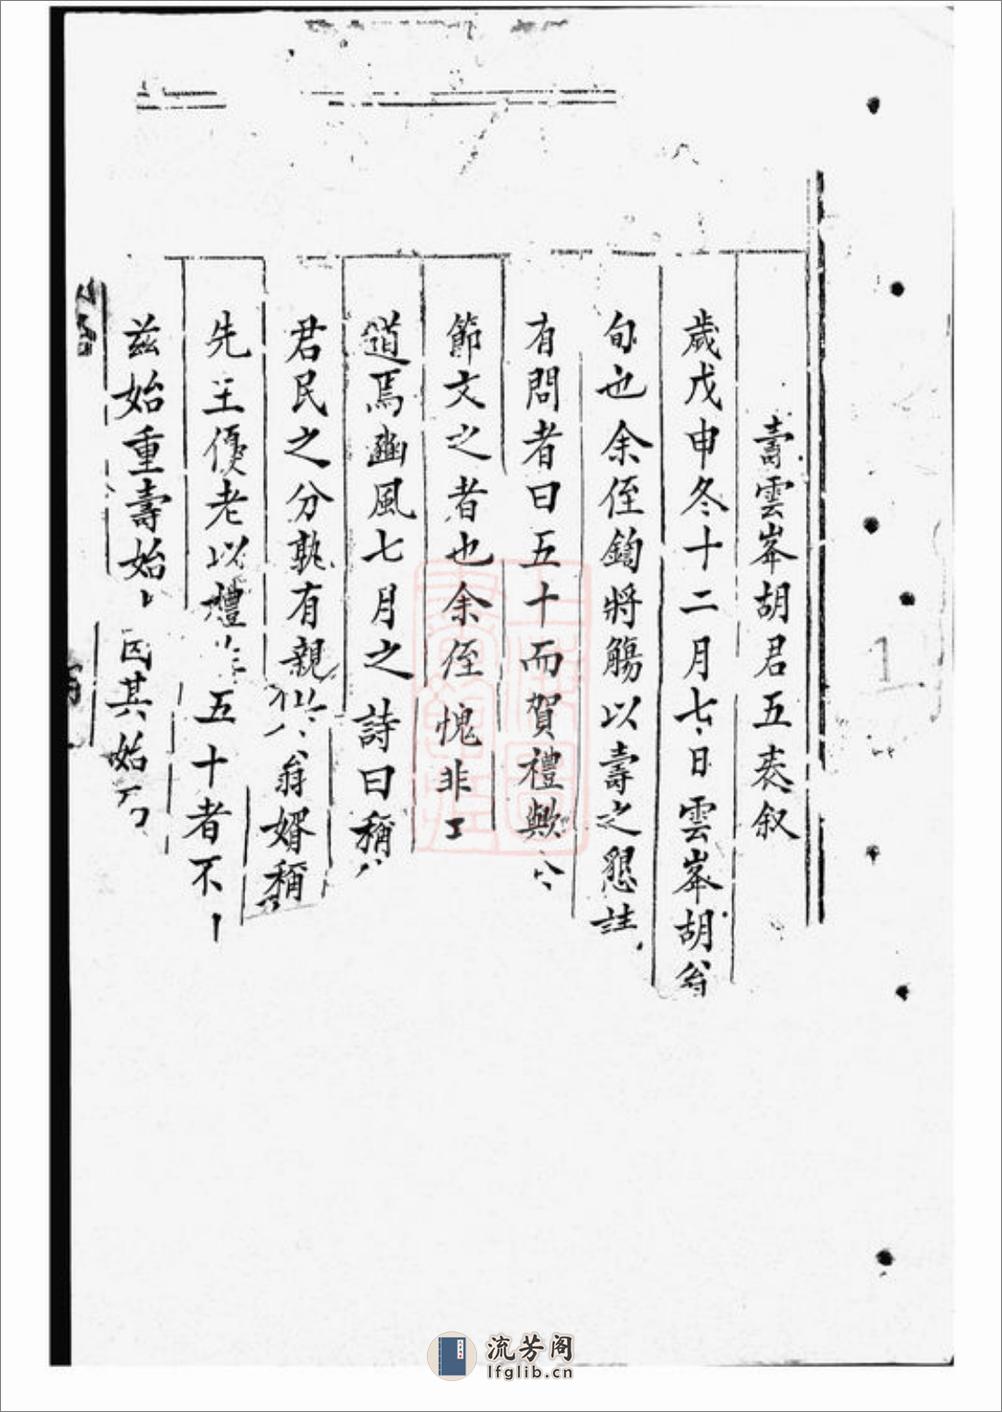 壽雲峯胡君五袠叙
歲戊申冬十二月七日雲峯胡翁
旬也余侄鈞將觴以壽之懇
有問者曰五十而賀禮歟
節文之者也余侄愧非工
道焉豳風七月之詩曰稱
君民之分孰有親翁婿稱
先王優老以禮五十者不
兹始重壽始因其始
流芳阁
lfglib.cn